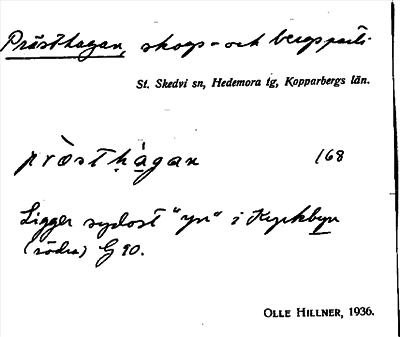 Prästhagan, skogs- och bergsparti.
St. Skedvi sn, Hedemora tg, Kopparbergs län.
prὰsthạ̀gan 168
Ligger sydost "yn" i Kyrkbyn
(södra) G 20.
OLLE HILLNER, 1936.